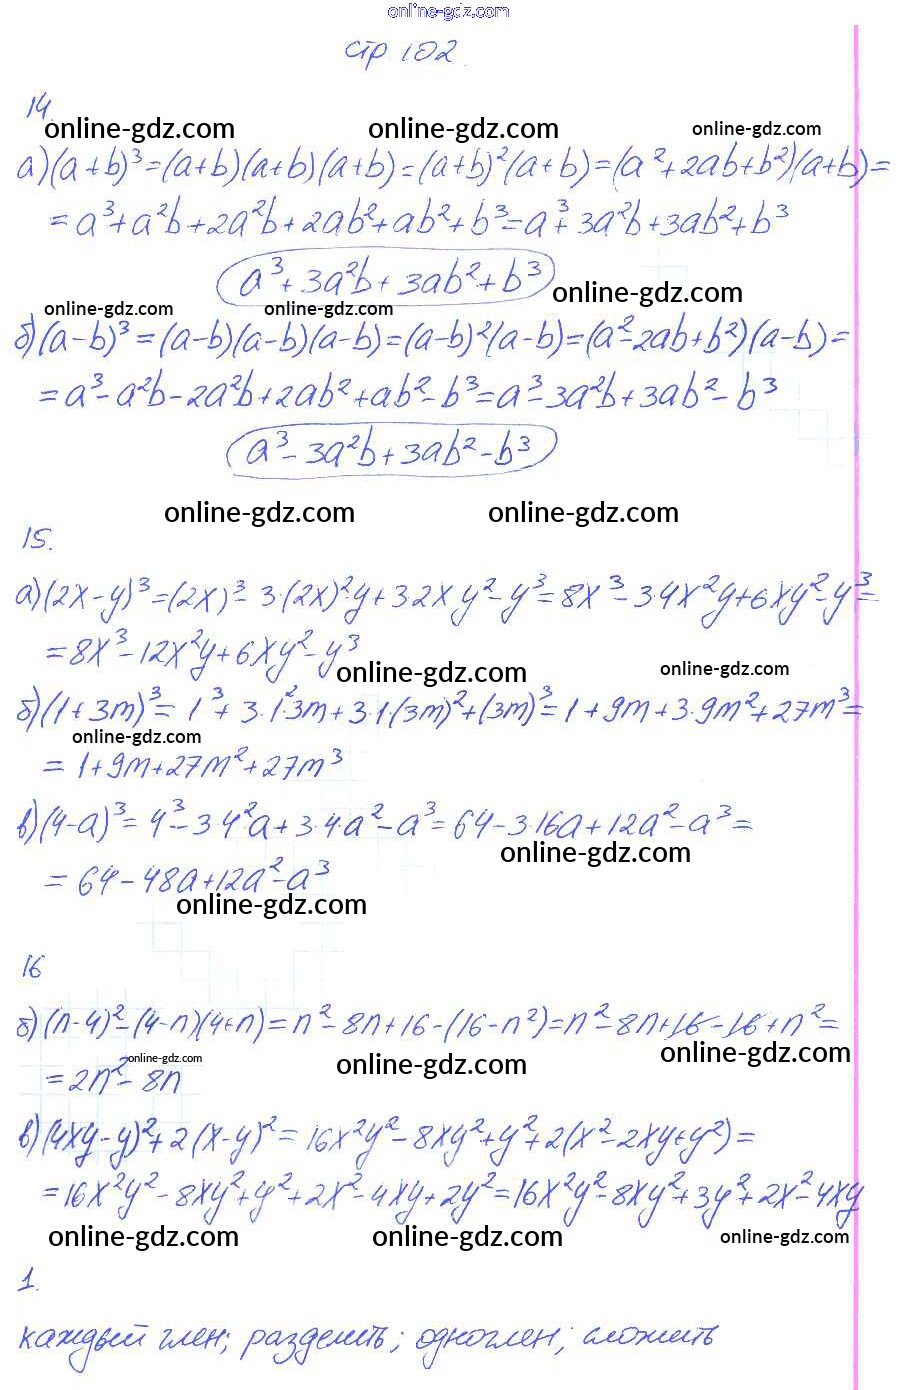 online-gdz.com
стр 102.
14.
online-gdz.com online-gdz.com online-gdz.com
а)(a+b)³=(a+b)(a+b)(a+b)=(a+b)²(a+b)=(a²+2ab+b²)(a+b)=
=a³+a²b+2a²b+2ab²+ab²+b³=a³+3a²b+3ab²+b³
a³+3a²b+3ab²+b³
online-gdz.com online-gdz.com online-gdz.com
б)(a-b)³=(a-b)(a-b)(a-b)=(a-b)²(a-b)=(a²-2ab+b²)(a-b)=
=a³-a²b-2a²b+2ab²+ab²-b³=a³-3a²b+3ab²-b³
a³-3a²b+3ab²-b³
online-gdz.com online-gdz.com
15.
а)(2x-y)³=(2x)³-3·(2x)²y+3·2xy²-y³=8x³-3·4x²y+6xy²-y³=
=8x³-12x²y+6xy²-y³
online-gdz.com online-gdz.com
б)(1+3m)³=1³+3·1²·3m+3·1·(3m)²+(3m)³=1+9m+3·9m²+27m³=
online-gdz.com
=1+9m+27m²+27m³
в)(4-a)³=4³-3·4²a+3·4·a²-a³=64-3·16a+12a²-a³=
online-gdz.com
=64-48a+12a²-a³
online-gdz.com
16
б)(n-4)²-(4-n)(4+n)=n²-8n+16-(16-n²)=n²-8n+16-16+n²=
online-gdz.com online-gdz.com online-gdz.com
=2n²-8n
в)(4xy-y)²+2(x-y)²=16x²y²-8xy²+y²+2(x²-2xy+y²)=
=16x²y²-8xy²+y²+2x²-4xy+2y²=16x²y²-8xy²+3y²+2x²-4xy
online-gdz.com online-gdz.com online-gdz.com
1.
каждый член; разделить; одночлен; сложить